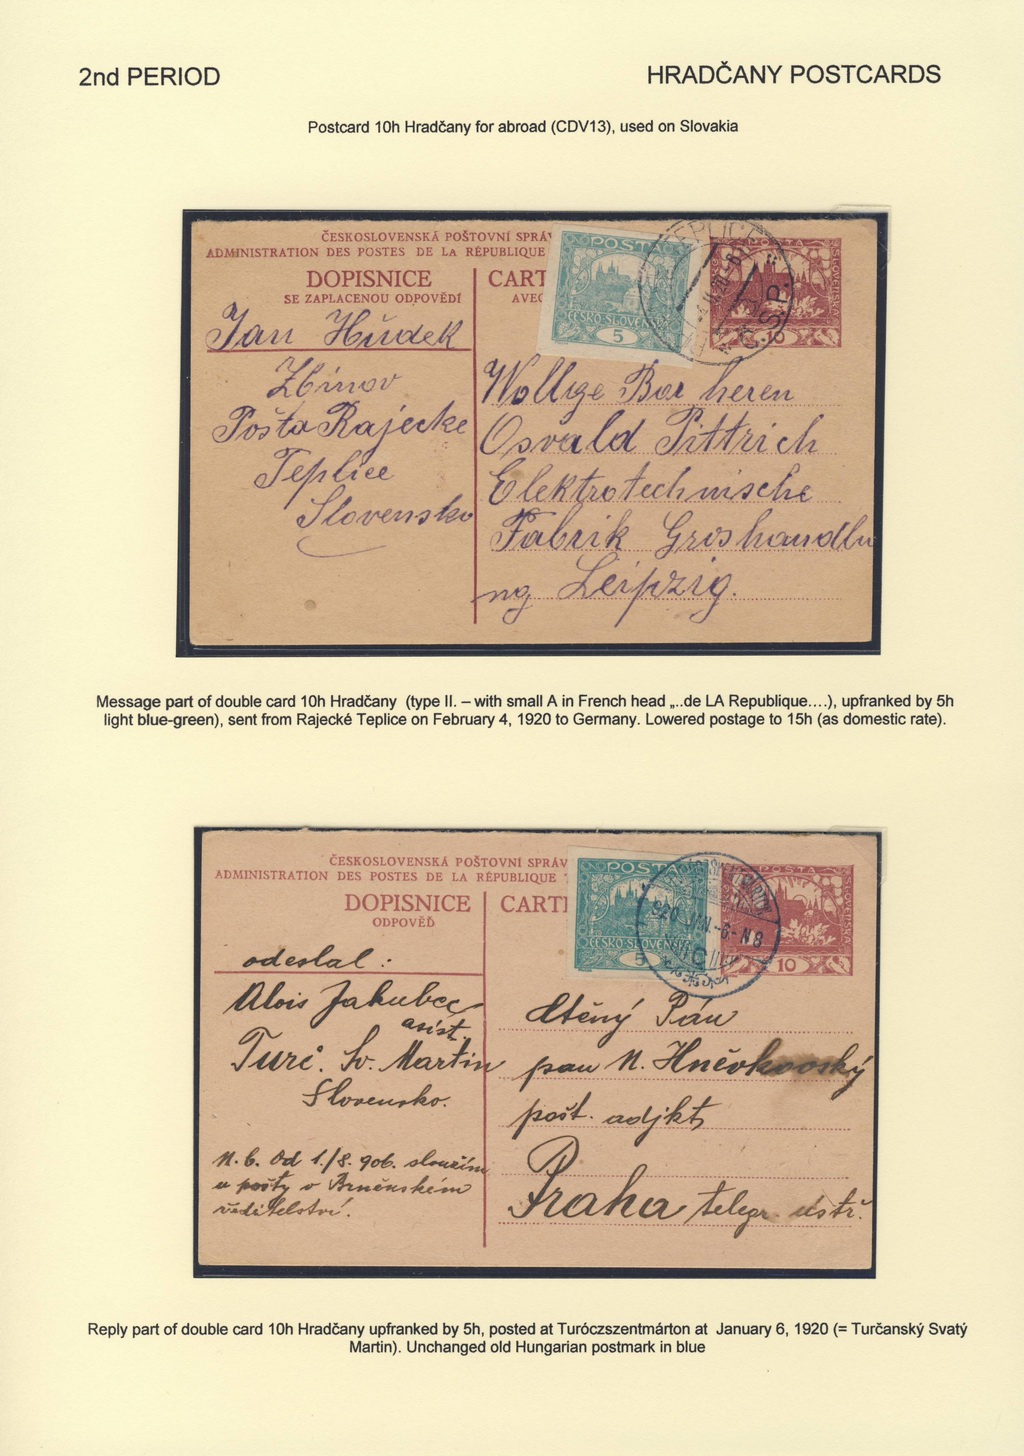 2nd PERIOD
HRADČANY POSTCARDS
Postcard 10h Hradčany for abroad (CDV13), used on Slovakia
ČESKOSLOVENSKÁ POŠTOVNÍ SPRÁV
ADMINISTRATION DES POSTES DE LA RÉPUBLIQUE
DOPISNICE
SE ZAPLACENOU ODPOVĚDÍ
CART
AVEC
POSTA
ČESKO-SLOVENSKÁ
5
10
TEPLICE
Č.S.P.
Jan Hudek
Zbinov
Pošta Rajecke
Teplice
Slovensko
Osvald Pittrich
Elektrotechnische
Fabrik Groshandlu
ng Leipzig.
Message part of double card 10h Hradčany (type II. – with small A in French head „..de LA Republique....), upfranked by 5h
light blue-green), sent from Rajecké Teplice on February 4, 1920 to Germany. Lowered postage to 15h (as domestic rate).
ČESKOSLOVENSKÁ POŠTOVNÍ SPRÁV
ADMINISTRATION DES POSTES DE LA RÉPUBLIQUE T
DOPISNICE
ODPOVĚĎ
CART
POSTA
ČESKO-SLOVENSKÁ
5
POSTA
10
920 JAN.-6-N8
odeslal :
Alois Jakubec
asist.
Turč. Sv. Martin
Slovensko.
N.B. Od 1./8. 906. sloužím
u pošty v Brněnském
ředitelství.
Ctěný Pán
pan N. Hněvkovský
pošt. adjkt,
Praha telegr. ústř.
Reply part of double card 10h Hradčany upfranked by 5h, posted at Turóczszentmárton at January 6, 1920 (= Turčanský Svatý
Martin). Unchanged old Hungarian postmark in blue